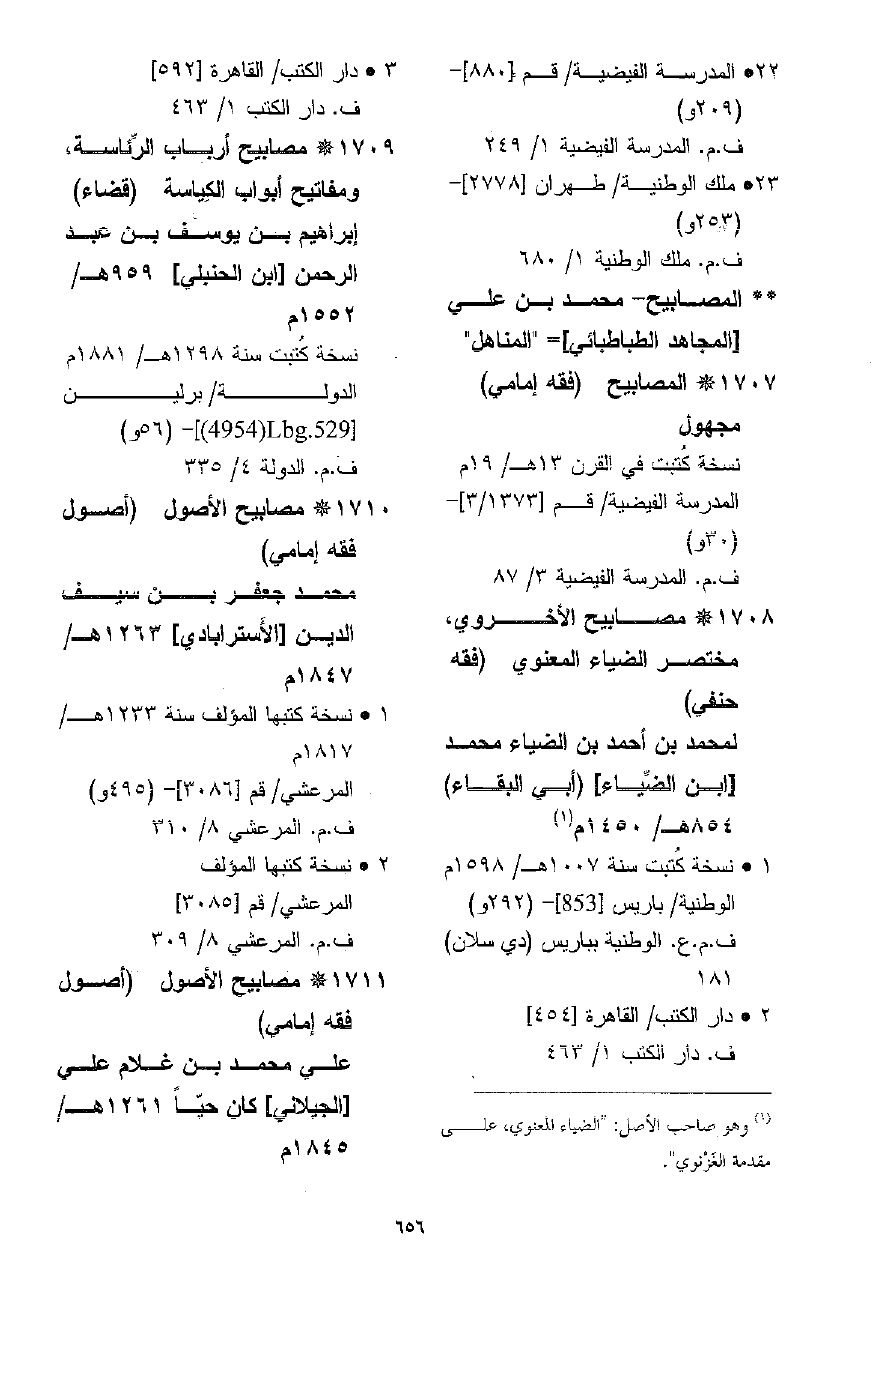 ٢٢• المدرسة الفيضية/ قم [٨٨٠]-
(٢٠٩و)
ف.م. المدرسة الفيضية ١/ ٢٤٩
٢٣• ملك الوطنية/ طهران [٢٧٧٨]-
(٢٥٣و)
ف.م. ملك الوطنية ١/ ٦٨٠
** المصابيح- محمد بن علي
[المجاهد الطباطبائي]= "المناهل"
١٧٠٧* المصابيح (فقه إمامي)
مجهول
نسخة كُتبت في القرن ١٣هـ/ ١٩م
المدرسة الفيضية/ قم [٣/١٣٧٣]-
(٣٠و)
ف.م. المدرسة الفيضية ٣/ ٨٧
١٧٠٨* مصابيح الأخروي،
مختصر الضياء المعنوي (فقه
حنفي)
لمحمد بن أحمد بن الضياء محمد
[ابن الضِّياء] (أبي البقاء)
٨٥٤هـ/ ١٤٥٠م(١)
١ • نسخة كُتبت سنة ١٠٠٧هـ/ ١٥٩٨م
الوطنية/ باريس [853]- (٢٩٢و)
ف.م.ع. الوطنية بباريس (دي سلان)
١٨١
٢ • دار الكتب/ القاهرة [٤٥٤]
ف. دار الكتب ١/ ٤٦٣
(١) وهو صاحب الأصل: "الضياء المعنوي، على
مقدمة الغَزْنوي".
٣ • دار الكتب/ القاهرة [٥٩٢]
ف. دار الكتب ١/ ٤٦٣
١٧٠٩* مصابيح أرباب الرِّئاسة،
ومفاتيح أبواب الكياسة (قضاء)
إبراهيم بن يوسف بن عبد
الرحمن [ابن الحنبلي] ٩٥٩هـ/
١٥٥٢م
نسخة كُتبت سنة ١٢٩٨هـ/ ١٨٨١م
الدولة/ برلين
[Lbg.529(4954)]- (٥٦و)
ف.م. الدولة ٤/ ٣٣٥
١٧١٠* مصابيح الأصول (أصول
فقه إمامي)
محمد جعفر بن سيف
الدين [الأستراباذي] ١٢٦٣هـ/
١٨٤٧م
١ • نسخة كتبها المؤلف سنة ١٢٣٣هـ/
١٨١٧م
المرعشي/ قم [٣٠٨٦]- (٤٩٥و)
ف.م. المرعشي ٨/ ٣١٠
٢ • نسخة كتبها المؤلف
المرعشي/ قم [٣٠٨٥]
ف.م. المرعشي ٨/ ٣٠٩
١٧١١* مصابيح الأصول (أصول
فقه إمامي)
علي محمد بن غلام علي
[الجيلاني] كان حيّاً ١٢٦١هـ/
١٨٤٥م
٦٥٦